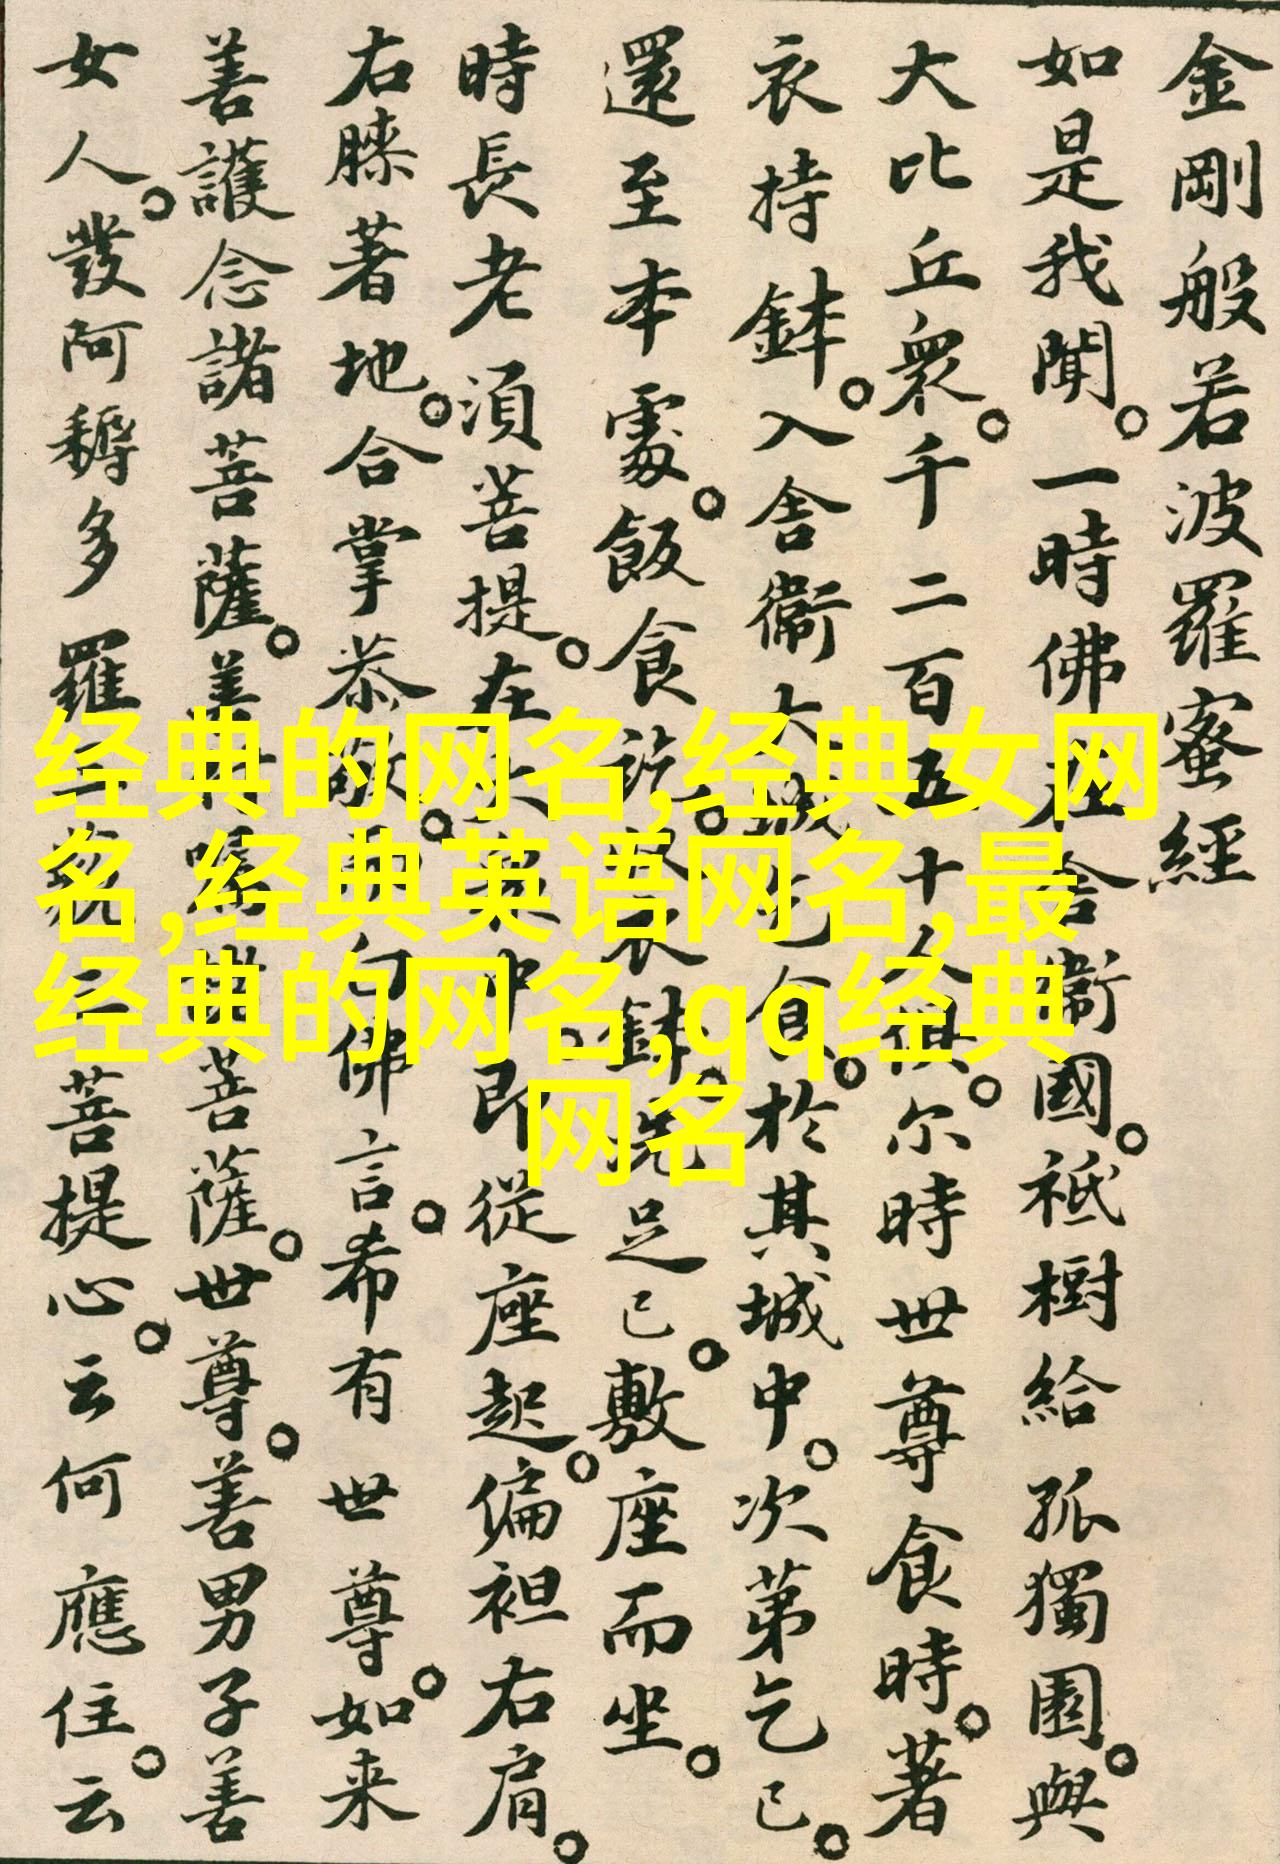 金剛般若波羅蜜經
如是我聞。一時佛在舍衞國。祇樹給孤獨園。與
大比丘衆。千二百五十人俱。尔時世尊食時。著
衣持鉢。入舍衞大城乞食。於其城中。次第乞已。
還至本處。飯食訖。收衣鉢。洗足已。敷座而坐。
時長老須菩提。在大衆中。即從座起。偏袒右肩。
右膝著地。合掌恭敬。而白佛言。希有世尊。如来
善護念諸菩薩。善付囑諸菩薩。世尊。善男子善
女人。發阿耨多羅三藐三菩提心。云何應住。云
经典的网名,经典女网
名,经典英语网名,最
经典的网名,qq经典
网名